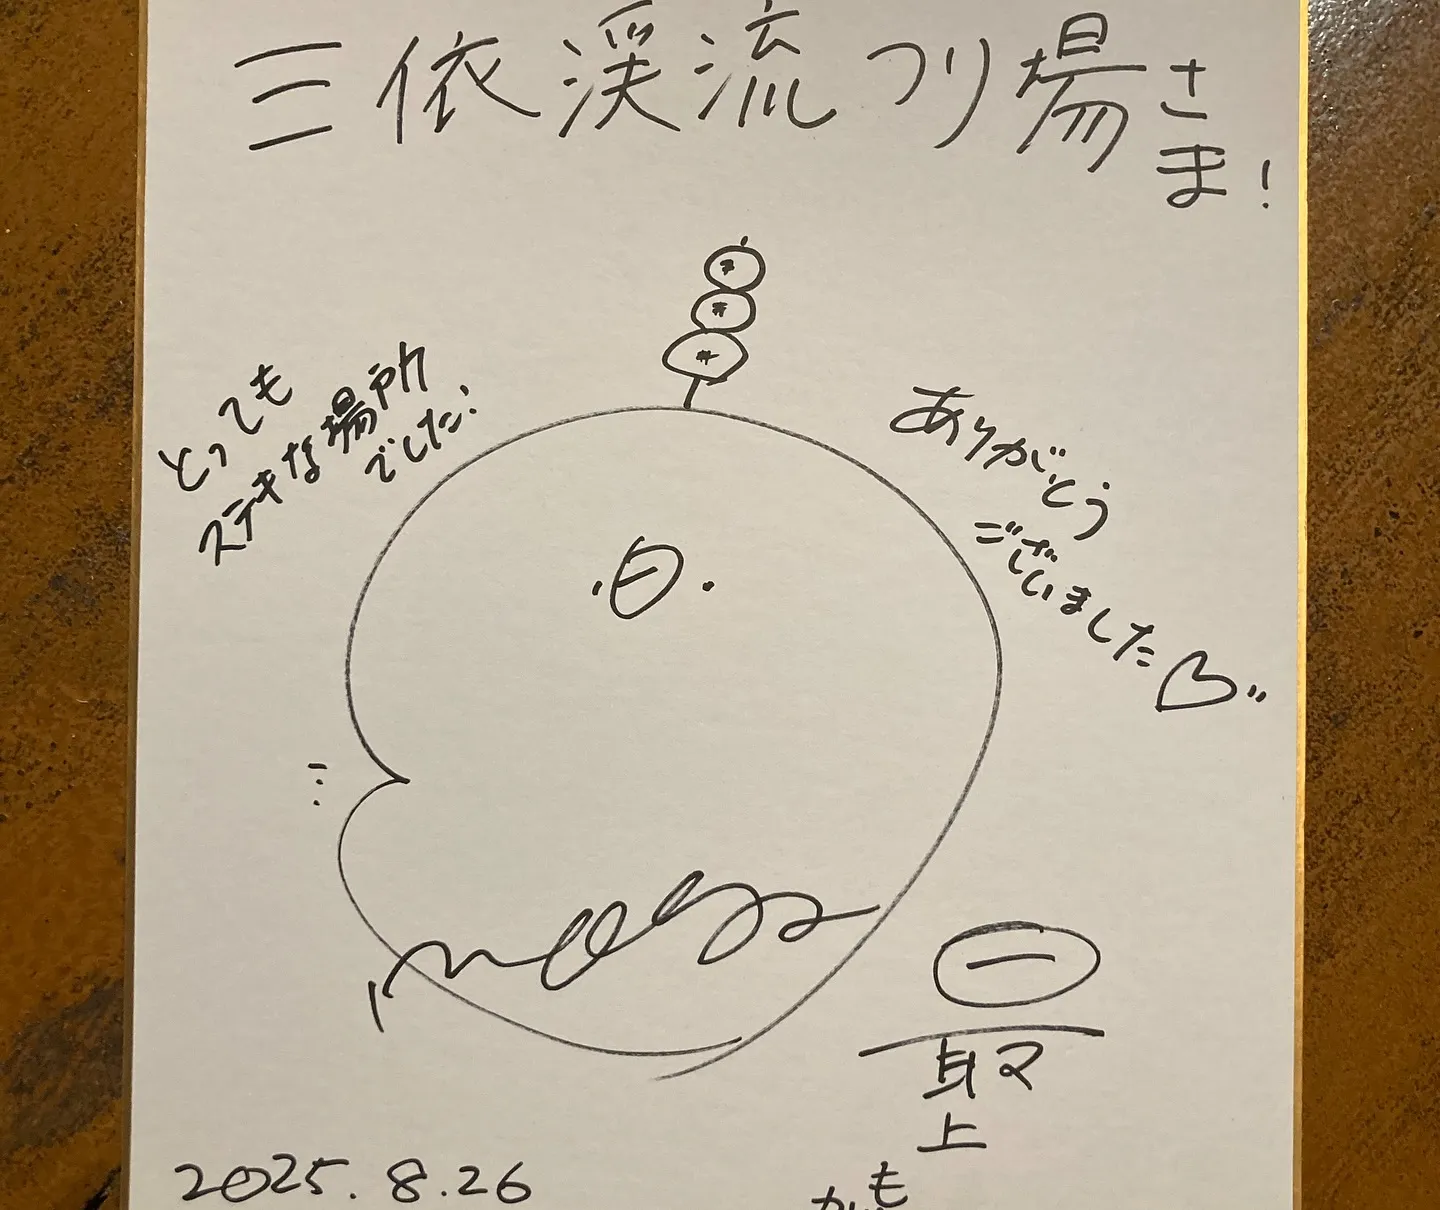 三依渓流つり場さま!
とっても
ステキな場所
でした!
ありがとう
ございました
最上
もが
2025.8.26